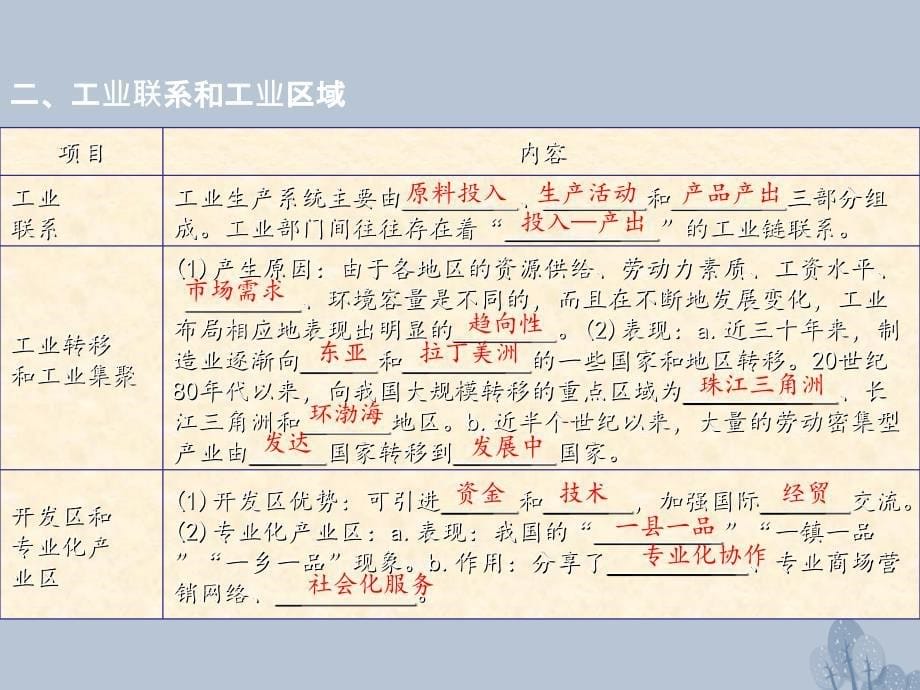 二、工业联系和工业区域
项目 内容
工业
联系
工业生产系统主要由原料投入、生产活动和产品产出三部分组
成。工业部门间往往存在着“投入—产出”的工业链联系。
工业转移
和工业集聚
(1)产生原因：由于各地区的资源供给、劳动力素质、工资水平、
市场需求、环境容量是不同的，而且在不断地发展变化，工业
布局相应地表现出明显的趋向性。(2)表现：a.近三十年来，制
造业逐渐向东亚和拉丁美洲的一些国家和地区转移。20世纪
80年代以来，向我国大规模转移的重点区域为珠江三角洲、长
江三角洲和环渤海地区。b.近半个世纪以来，大量的劳动密集型
产业由发达国家转移到发展中国家。
开发区和
专业化产
业区
(1)开发区优势：可引进资金和技术，加强国际经贸交流。
(2)专业化产业区：a.表现：我国的“一县一品”“一镇一品
”“一乡一品”现象。b.作用：分享了专业化协作、专业商场营
销网络、社会化服务。